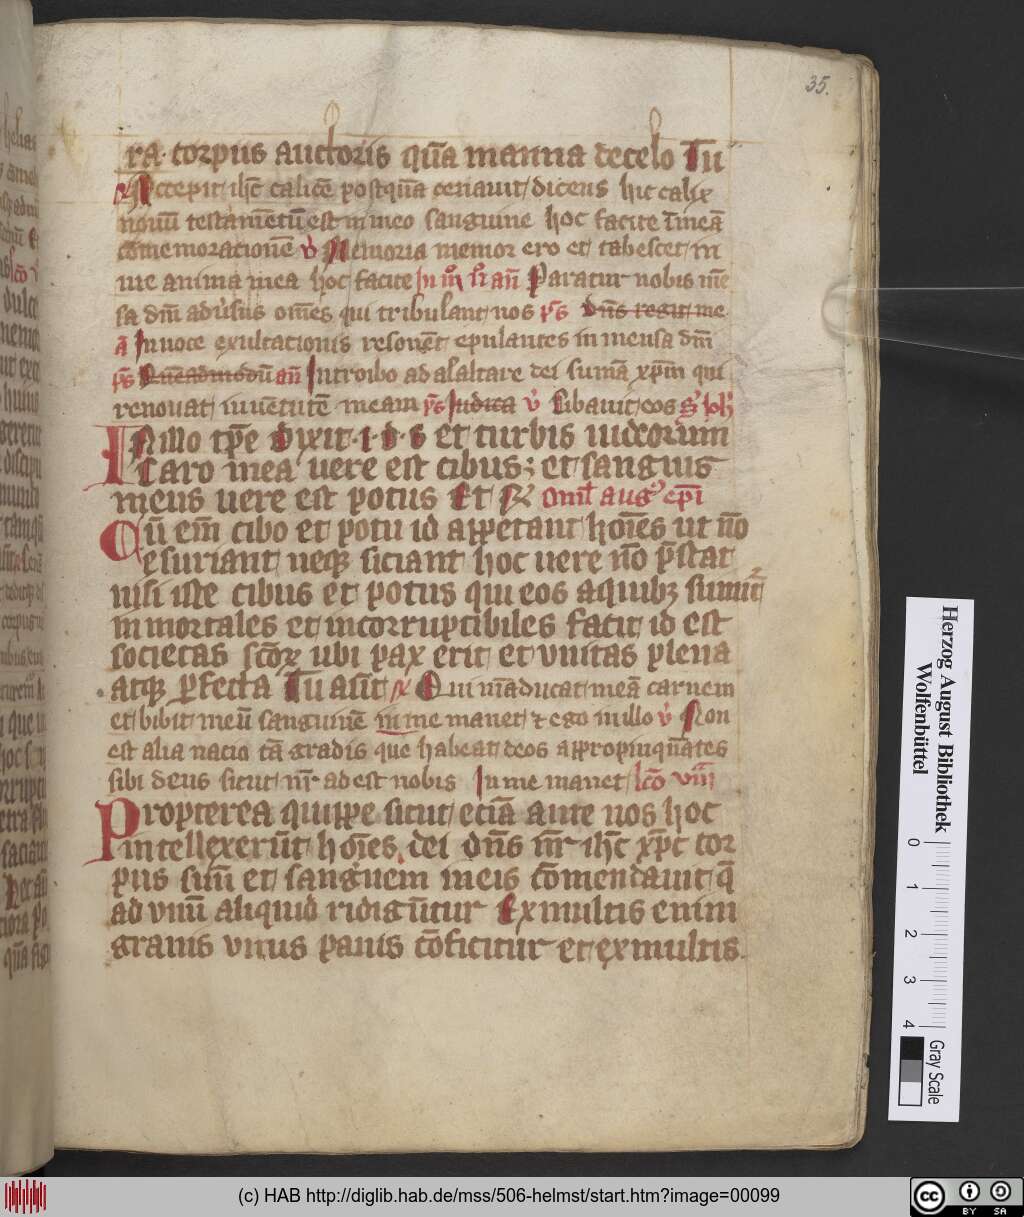 35.
ra corpus auctoris qua᷃ manna de celo Tu
℟ Accepit ih̅c calice̅ postqua̅ cenauit dicens hic calix
nouu̅ testame̅tu̅ est in meo sanguine hoc facite i̅ mea̅
co̅memoratione̅ v̉ Memoria memor ero et tabescet in
me anima mea hoc facite In an̅ Paratur nobis me̅
sa dn̅i adu̓sus om̅es qui tribulant nos p̅s Dn̅s regit me
a̅ In uoce exultationis resone̅t epulantes in mensa dn̅i
p̅s Que̅admodu̅ an̅ Introibo ad altare dei suma̅ xp̅m qui
renouat iuuentute̅ meam p̅s Iudica v̉ Cibauit eos
In illo tp̅e Dixit i d s et turbis iudeorum
Caro mea uere est cibus et sanguis
meus uere est potus Et ℟ Om̅l aug᷒ ep̅i
Cu̅ em̅ cibo et potu id appetant ho̅i̅es ut no̅
esuriant neqꝫ siciant hoc uere no̅ p̅stat
nisi iste cibus et potus qui eos a quibꝫ sumit᷑
inmortales et incorruptibiles facit id est
societas sc̅oꝝ ubi pax erit et vnitas plena
atqꝫ p̱fecta Tu aut̅ ℟ Qui ma̅ducat mea̅ carnem
et bibit meu̅ sanguine̅ in me manet ⁊ ego in illo v̉ Non
est alia nacio ta̅ gradis que habeat deos appropinqua̅tes
sibi deus sicut nr̅ adest nobis In me manet lc̅o viii
Propterea quippe sicut ecia̅ ante nos hoc
intellexeru̅t ho̅i̅es dei dn̅s nr̅ ih̅c xp̅c cor
pus suu̅ et sanguem in eis co̅mendauit q̅
ad vnu̅ aliquid ridigu̅tur Ex multis enim
granis vnus panis co̅ficitur et ex multis
Herzog August Bibliothek
Wolfenbüttel
0 1 2 3 4
Gray Scale
(c) HAB http://diglib.hab.de/mss/506-helmst/start.htm?image=00099
cc BY SA